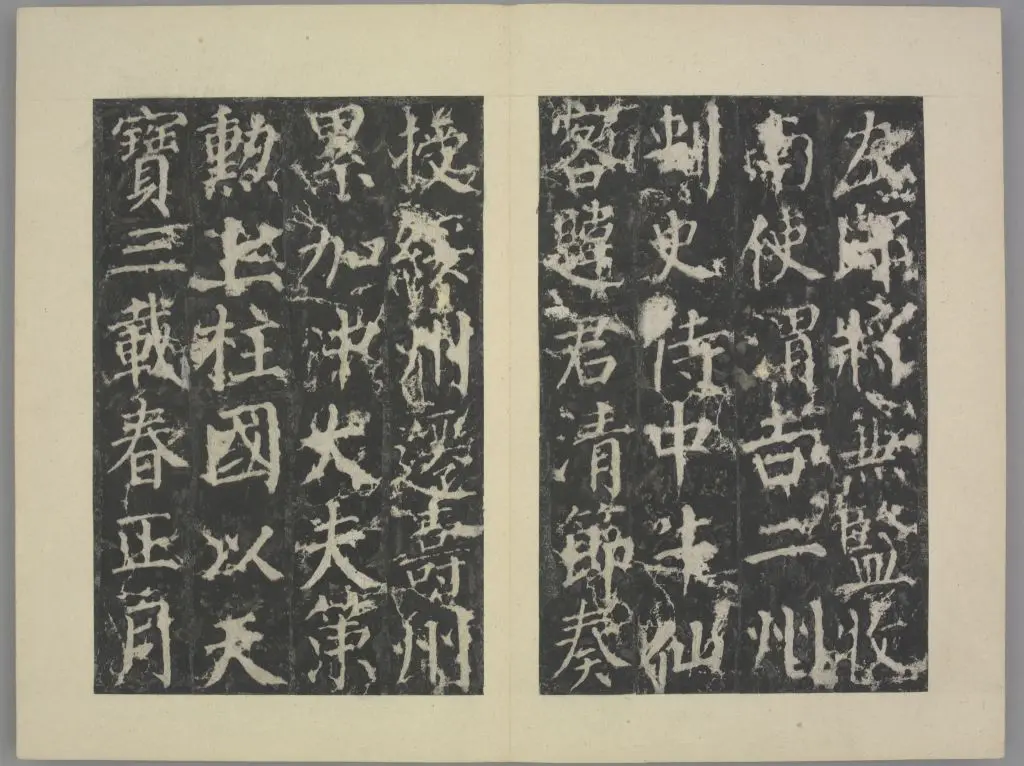 左郎將兼監牧
南使渭吉二州
刺史侍中牛仙
客韙君清節奏
授綏州遷壽州
累加中大夫策
勳上柱國以天
寶三載春正月